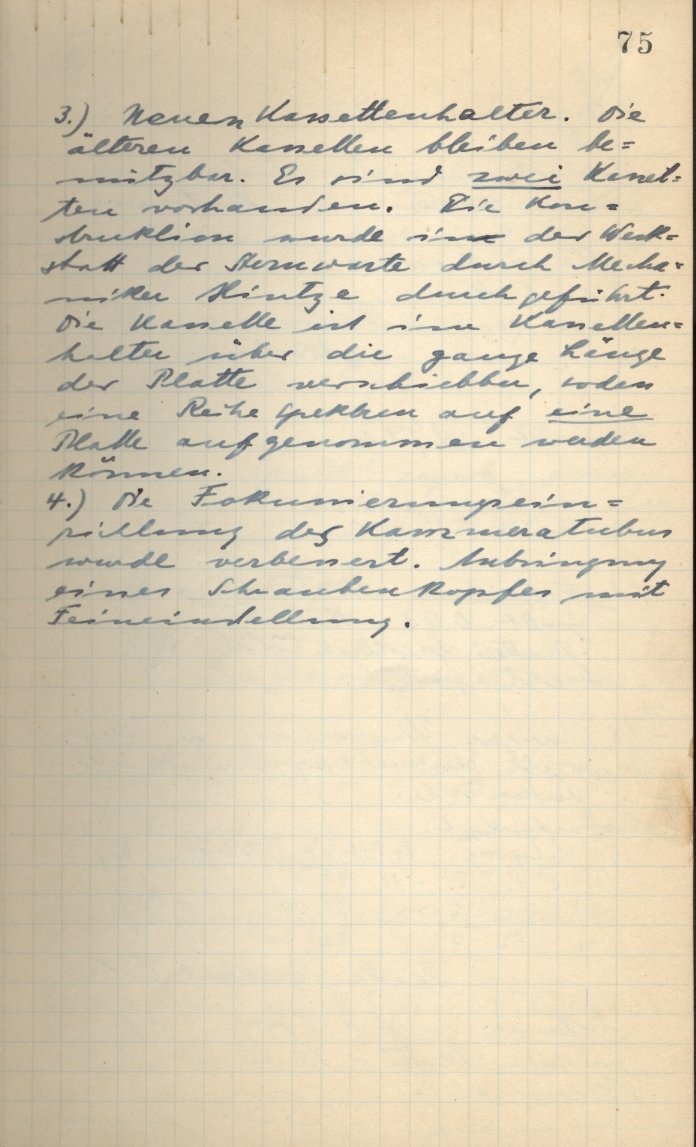 75
3.) Neuen Kassettenhalter. Die
älteren Kassetten bleiben be=
nützbar. Es sind zwei Kasset-
ten vorhanden. Die Kon=
struktion wurde in der Werk=
statt der Sternwarte durch Mecha-
niker Hintze durchgeführt.
Die Kassette ist im Kassetten=
halter über die ganze Länge
der Platte verschiebbar, sodass
eine Reihe Spektren auf eine
Platte aufgenommen werden
können.
4.) Die Fokussierungsein=
stellung des Kammeratubus
wurde verbessert. Anbringung
eines Schraubenkopfes mit
Feineinstellung.